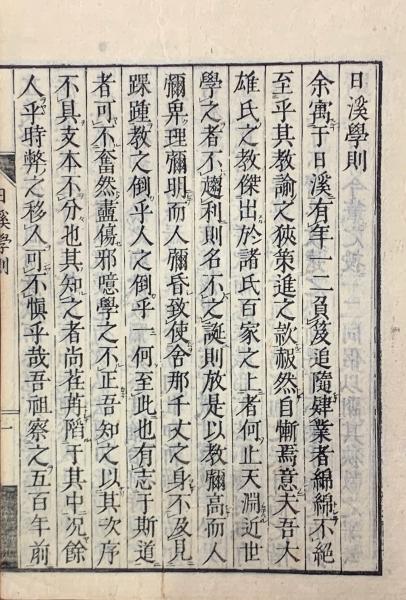 日溪學則
余寓于日溪有年一二負笈追隨肄業者綿綿不絕
至乎其教諭之狹策進之欵赧然自慚焉意夫吾大
雄氏之教傑出於諸氏百家之上者何止天淵近世
學之者不趨利則名不之誕則放是以教彌高而人
彌卑理彌明而人彌昏致使舍那千丈之身不及見
踝踵教之倒乎人之倒乎一何至此也有志于斯道
者可不奮然盡傷邪噫學之不正吾知之以其次序
不具支本不分也其知之者尚荏苒陷于其中况餘
人乎時弊之移人可不慎乎哉吾祖察之五百年前
日溪學則
一